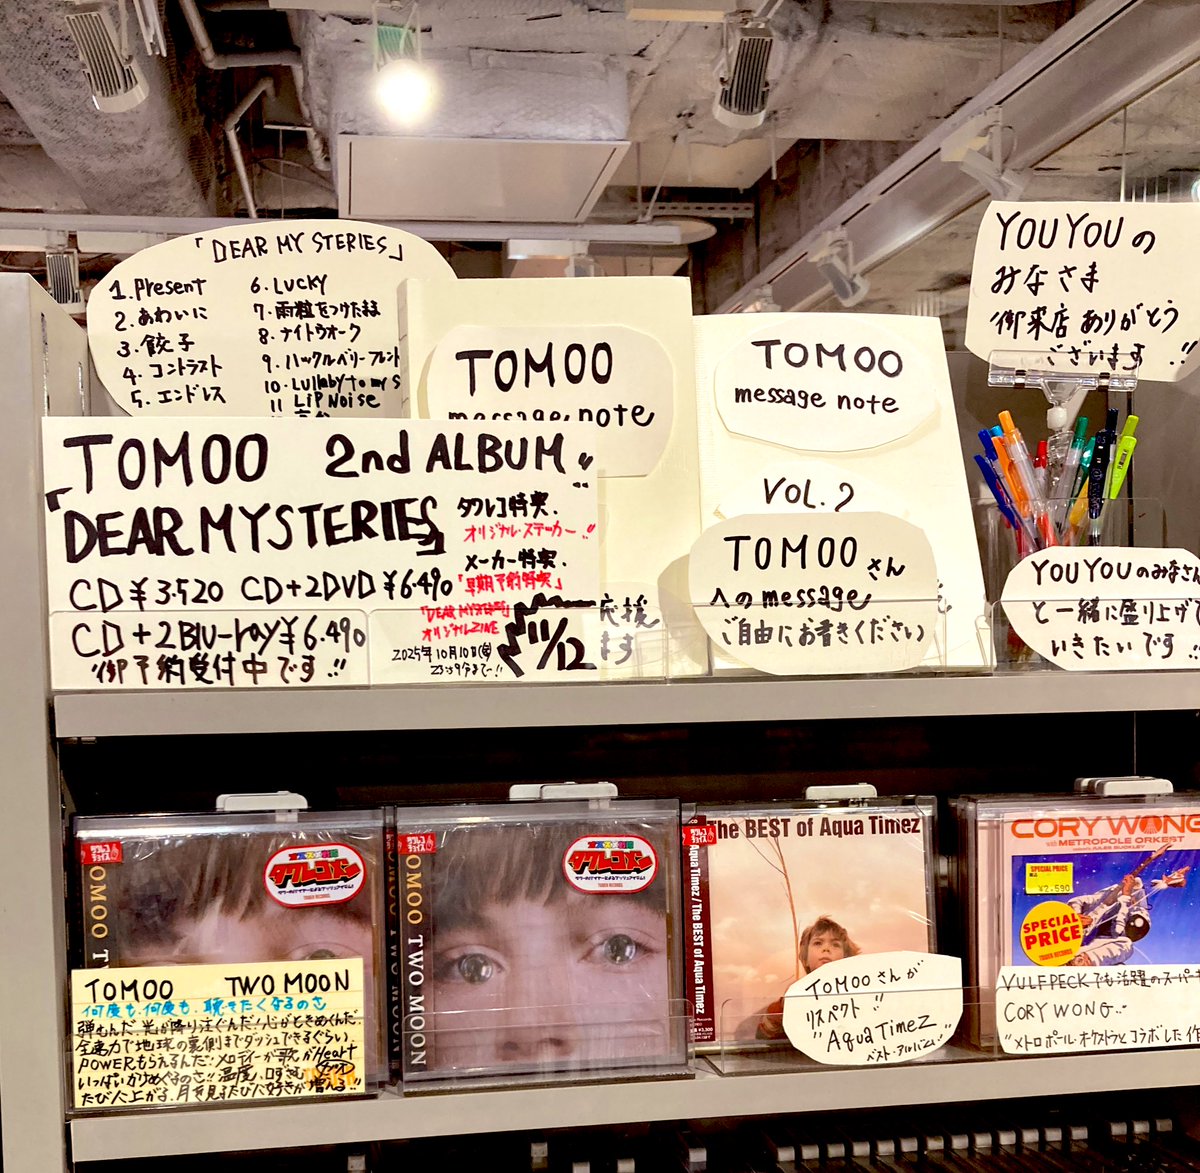 「DEAR MYSTERIES」
1. Present
2. あわいに
3. 餃子
4. コントラスト
5. エンドレス
6. Lucky
7. 雨粒をつけたまま
8. ナイトウォーク
9. ハックルベリーフレンド
10. Lullaby to my s
11 LIP NOISE
TOMOO
message note
TOMOO
message note
VOL. 2
YOUYOUの
みなさま
御来店ありがとう
ございます!!
TOMOO 2nd ALBUM"
「DEAR MYSTERIES」
CD¥3.520 CD+2DVD¥6.490
CD+2Blu-ray¥6.490
御予約受付中です!!
タワレコ特典.
オリジナル・ステッカー!!
メーカー特典.
「早期予約特典」
「DEAR MYSTERIES」
オリジナルZINE
2025年10月10日(金)
23:59今まで!!
11/12
応援
ます
TOMOOさん
へのmessage
ご自由にお書きください
YOUYOUのみなさん
と一緒に盛り上げて
いきたいです!!
タワレコ
チョイス
TOMOO TWO MOON
タワレコメン
TOWER RECORDS
TOMOO TWO MOON
何度も.何度も.聴きたくなるのさ
弾むんだ.光が降り注ぐんだ!心がときめくんだ.
全速力で地球の裏側までダッシュできるぐらい.
POWERもらえるんだ:メロディーが歌がHeart
いっぱいかけめぐるのさ!!温度.口ずさむ
たびに上がる.月を見るたびに好きが増える!!
タワレコ
チョイス
TOMOO TWO MOON
タワレコメン
TOWER RECORDS
タワレコ
チョイス
The BEST of Aqua Timez
Aqua Timez / The BEST of Aqua Timez
TOMOOさんが
リスペクト"
"Aqua Timez
ベスト・アルバム"
CORY WONG
with METROPOLE ORKEST
SPECIAL PRICE
¥2,590
SPECIAL
PRICE
TOWER RECORDS
VULFPECKでも活躍のスーパーギ
CORY WONG..
"メトロポール・オケストラとコラボした作